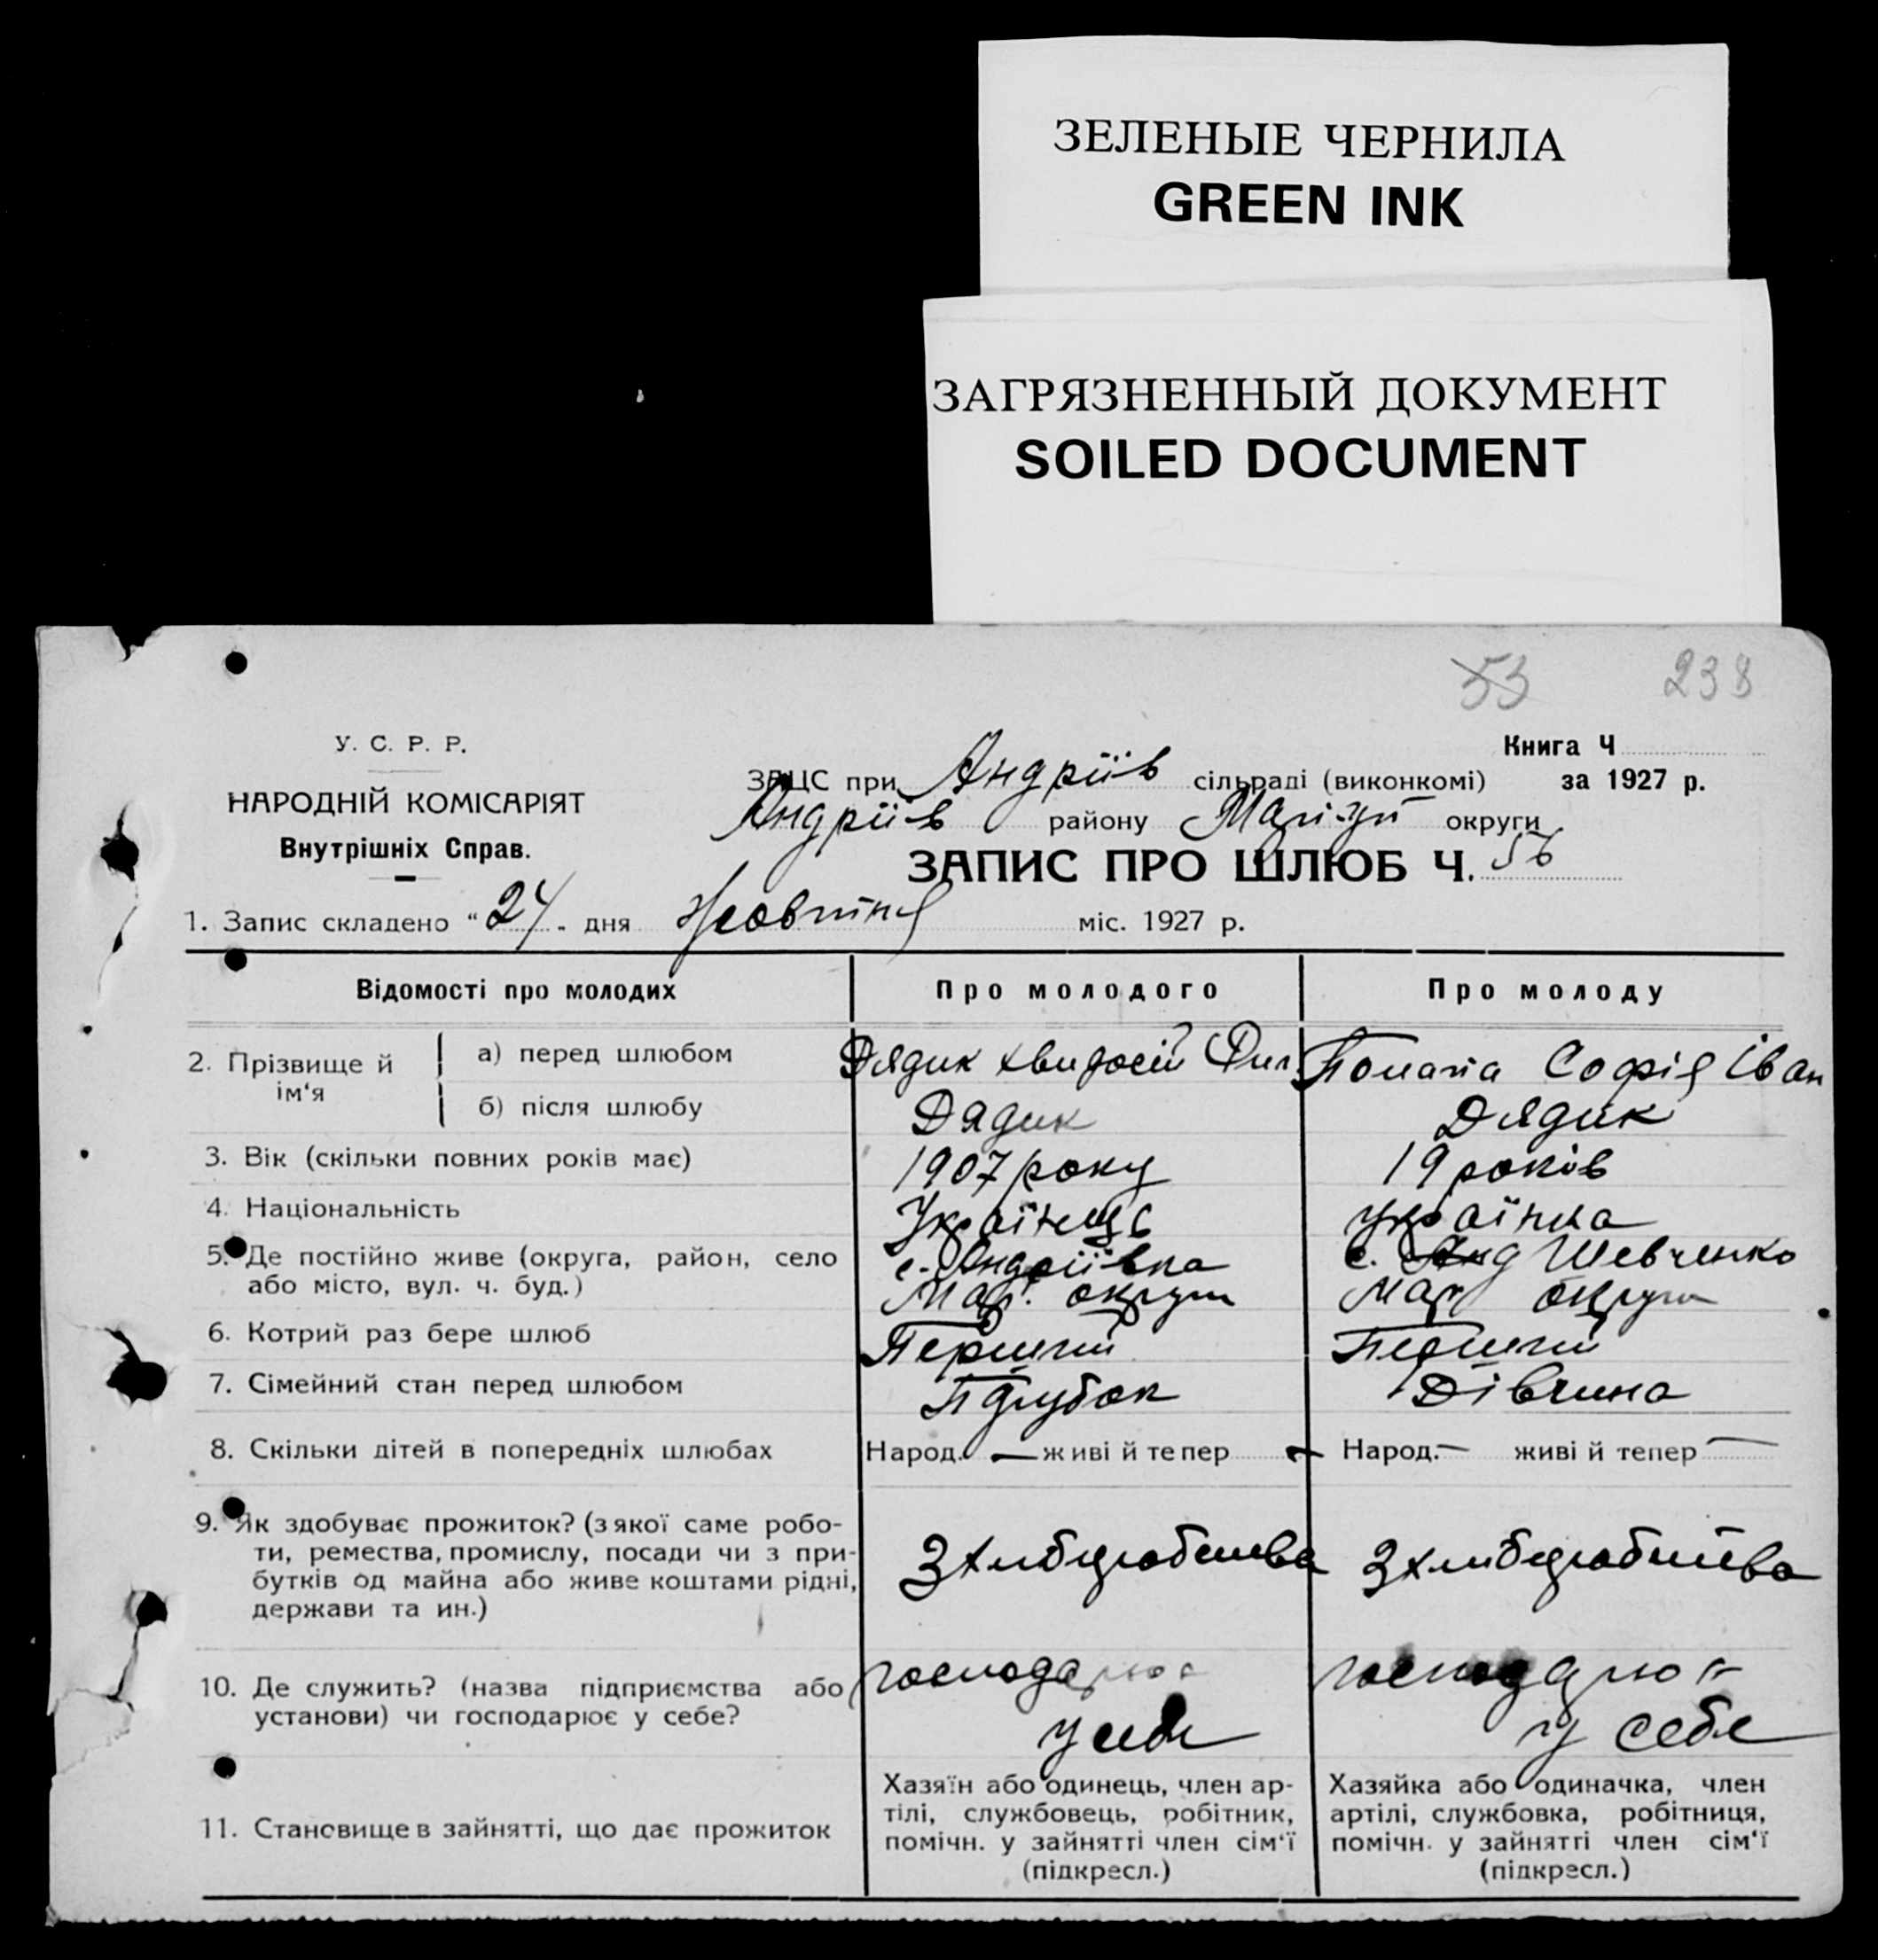 ЗЕЛЕНЫЕ ЧЕРНИЛА
GREEN INK
ЗАГРЯЗНЕННЫЙ ДОКУМЕНТ
SOILED DOCUMENT
53 238
У. С. Р. Р.
НАРОДНІЙ КОМІСАРІЯТ
Внутрішніх Справ.
Книга Ч
за 1927 р.
ЗАЦС при Андріїв сільраді (виконкомі)
Андріїв району округи
ЗАПИС ПРО ШЛЮБ Ч. 56
1. Запис складено "24" дня Жовтня міс. 1927 р.
Відомості про молодих Про молодого Про молоду
2. Прізвище й ім'я
а) перед шлюбом Дядик Софія Іван
б) після шлюбу Дядик Дядик
3. Вік (скільки повних років має) 1907 року 19 років
4. Національність Українець Українка
5. Де постійно живе (округа, район, село с. Андріївка с. Шевченко
або місто, вул. ч. буд.) Мар. округи Мар округи
6. Котрий раз бере шлюб Перший Перший
7. Сімейний стан перед шлюбом Парубок Дівчина
8. Скільки дітей в попередніх шлюбах Народ. — живі й тепер — Народ. — живі й тепер —
9. Як здобуває прожиток? (з якої саме робо-
ти, ремества, промислу, посади чи з при-
бутків од майна або живе коштами рідні,
держави та ин.)
З хліборобства З хліборобства
10. Де служить? (назва підприємства або
установи) чи господарює у себе?
господарює господарює
у себе у себе
11. Становище в зайнятті, що дає прожиток
Хазяїн або одинець, член ар-
тілі, службовець, робітник,
помічн. у зайнятті член сім'ї
(підкресл.)
Хазяйка або одиначка, член
артілі, службовка, робітниця,
помічн. у зайнятті член сім'ї
(підкресл.)